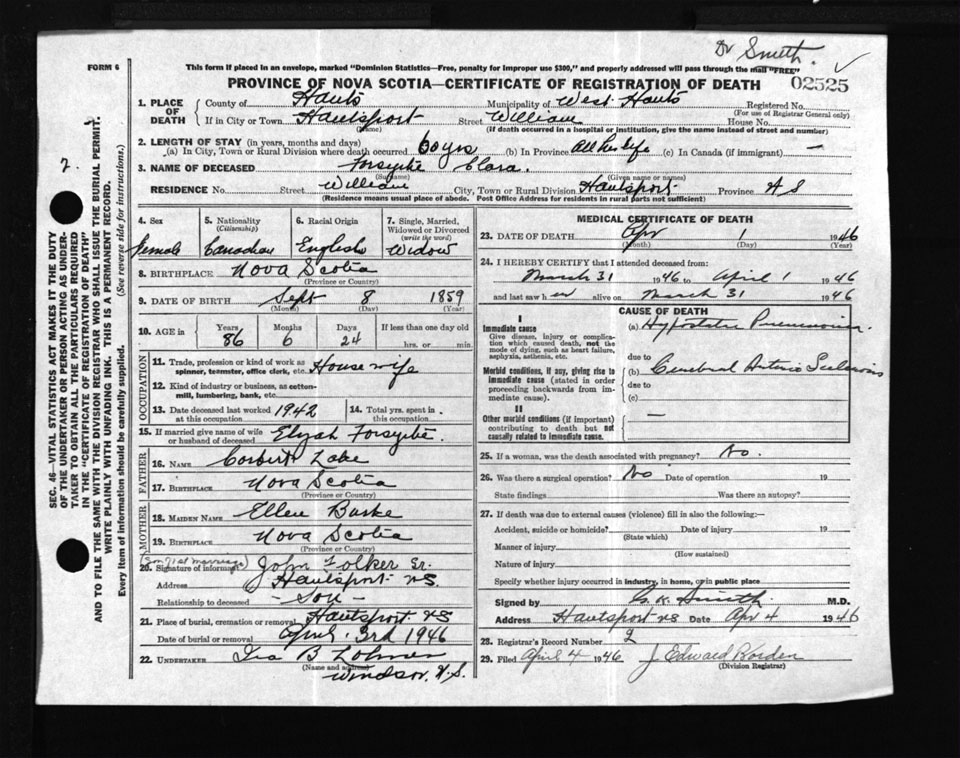 Dr Smith. ✓
FORM 6
This form if placed in an envelope, marked "Dominion Statistics—Free, penalty for improper use $300," and properly addressed will pass through the mail "FREE"
PROVINCE OF NOVA SCOTIA—CERTIFICATE OF REGISTRATION OF DEATH 02525
1. PLACE OF DEATH
County of Hants Municipality of West Hants Registered No.
(For use of Registrar General only)
If in City or Town Hantsport Street William House No.
(Name) (If death occurred in a hospital or institution, give the name instead of street and number)
2. LENGTH OF STAY (in years, months and days)
(a) In City, Town or Rural Division where death occurred 60 yrs (b) In Province All her life (c) In Canada (if immigrant) —
3. NAME OF DECEASED Forsythe Clara.
(Surname) (Given name or names)
RESIDENCE No. Street William City, Town or Rural Division Hantsport Province N S
(Residence means usual place of abode. Post Office Address for residents in rural parts not sufficient)
4. Sex Female
5. Nationality (Citizenship) Canadian
6. Racial Origin English
7. Single, Married, Widowed or Divorced (write the word) Widow
8. BIRTHPLACE Nova Scotia
(Province or Country)
9. DATE OF BIRTH Sept 8 1859
(Month) (Day) (Year)
10. AGE in Years Months Days If less than one day old
86 6 24 hrs. or min.
OCCUPATION
11. Trade, profession or kind of work as spinner, teamster, office clerk, etc. Housewife
12. Kind of industry or business, as cotton-mill, lumbering, bank, etc.
13. Date deceased last worked at this occupation 1942 14. Total yrs. spent in this occupation.
15. If married give name of wife or husband of deceased Elijah Forsythe.
FATHER
16. NAME Corbert Lake
17. BIRTHPLACE Nova Scotia
(Province or Country)
MOTHER
18. MAIDEN NAME Ellen Burke
19. BIRTHPLACE Nova Scotia
(Province or Country)
(Son 1st marriage)
20. Signature of informant John Folker Sr.
Address Hantsport NS
Relationship to deceased - Son -
21. Place of burial, cremation or removal Hantsport NS
Date of burial or removal April 3rd 1946
22. UNDERTAKER Ira B Lohnes
(Name and address)
Windsor, N.S.
MEDICAL CERTIFICATE OF DEATH
23. DATE OF DEATH Apr 1 1946
(Month) (Day) (Year)
24. I HEREBY CERTIFY that I attended deceased from:
March 31 1946 to April 1 1946
and last saw her alive on March 31 1946
CAUSE OF DEATH
I
Immediate cause
Give disease, injury or complication which caused death, not the mode of dying, such as heart failure, asphyxia, asthenia, etc.
(a) Hypostatic Pneumonia.
due to
Morbid conditions, if any, giving rise to immediate cause (stated in order proceeding backwards from immediate cause).
(b) Cerebral Arterio Sclerosis
due to
(c)
II
Other morbid conditions (if important) contributing to death but not causally related to immediate cause. —
25. If a woman, was the death associated with pregnancy? No.
26. Was there a surgical operation? No Date of operation 19
State findings Was there an autopsy?
27. If death was due to external causes (violence) fill in also the following:—
Accident, suicide or homicide? Date of injury 19
(State which)
Manner of injury
(How sustained)
Nature of injury
Specify whether injury occurred in industry, in home, or in public place
Signed by C. K. Smith M.D.
Address Hantsport NS Date Apr 4 1946
28. Registrar's Record Number 9
29. Filed April 4 1946 J Edward Borden
(Division Registrar)
2.
SEC. 46—VITAL STATISTICS ACT MAKES IT THE DUTY
OF THE UNDERTAKER OR PERSON ACTING AS UNDER-
TAKER TO OBTAIN ALL THE PARTICULARS REQUIRED
IN THE "CERTIFICATE OF REGISTRATION OF DEATH"
AND TO FILE THE SAME WITH THE DIVISION REGISTRAR WHO SHALL ISSUE THE BURIAL PERMIT.
WRITE PLAINLY WITH UNFADING INK. THIS IS A PERMANENT RECORD.
Every item of information should be carefully supplied. (See reverse side for instructions.)